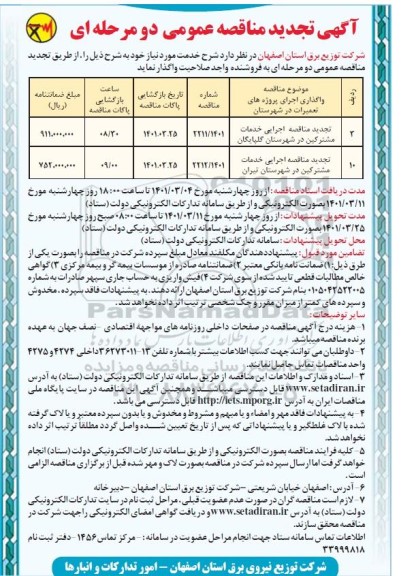 آگهی تجدید مناقصه عمومی دو مرحله ای
شرکت توزیع برق استان اصفهان در نظر دارد شرح خدمت مورد نیاز خود به شرح ذیل را، از طریق تجدید
مناقصه عمومی دو مرحله ای به فروشنده واجد صلاحیت واگذار نماید
ردیف
موضوع مناقصه واگذاری اجرای پروژه های تعمیرات در شهرستان
شماره مناقصه
تاریخ بازگشایی پاکات مناقصه
ساعت بازگشایی پاکات مناقصه
مبلغ ضمانتنامه (ریال)
۳
تجدید مناقصه اجرایی خدمات مشترکین در شهرستان گلپایگان
۲۲۱۱/۱۴۰۱
۱۴۰۱.۰۳.۲۵
۰۸/۳۰
۹۱۱.۰۰۰.۰۰۰
۱۰
تجدید مناقصه اجرایی خدمات مشترکین در شهرستان تیران
۲۲۱۲/۱۴۰۱
۱۴۰۱.۰۳.۲۵
۰۹/۰۰
۷۵۲.۰۰۰.۰۰۰
مدت دریافت اسناد مناقصه: از روز چهارشنبه مورخ ۱۴۰۱/۰۳/۰۴ تا ساعت ۱۸:۰۰ روز چهارشنبه مورخ
۱۴۰۱/۰۳/۱۱ بصورت الکترونیکی و از طریق سامانه تدارکات الکترونیکی دولت (ستاد)
مدت تحویل پیشنهادات: از روز چهارشنبه مورخ ۱۴۰۱/۰۳/۱۱ تا ساعت ۰۸:۰۰ صبح روز چهارشنبه مورخ
۱۴۰۱/۰۳/۲۵ بصورت الکترونیکی و از طریق سامانه تدارکات الکترونیکی دولت (ستاد)
محل تحویل پیشنهادات: سامانه تدارکات الکترونیکی دولت (ستاد)
تضامین مورد قبول: پیشنهاددهندگان مکلفند معادل مبلغ سپرده شرکت در مناقصه را بصورت یکی از
طرق ذیل: ۱) ضمانت نامه بانکی معتبر ۲) ضمانتنامه صادره از موسسات بیمه گر و بیمه مرکزی ۳) گواهی
خالص مطالبات قطعی تایید شده از سوی شرکت ۴) فیش واریزی به حساب جاری سپهر صادرات به شماره
۰۱۰۵۰۴۲۵۲۳۰۰۵ بنام شرکت توزیع برق استان اصفهان ارائه دهند. به پیشنهادات فاقد سپرده، مخدوش
و سپرده های کمتر از میزان مقرر و چک شخصی ترتیب اثر داده نخواهد شد.
سایر توضیحات:
۱- هزینه درج آگهی مناقصه در صفحات داخلی روزنامه های مواجهه اقتصادی - نصف جهان به عهده
برنده مناقصه میباشد
۲- داوطلبان می توانند جهت کسب اطلاعات بیشتر با شماره تلفن ۱۳-۳۶۲۷۳۰۱۱ داخلی ۴۲۷۴ و ۴۲۷۵
واحد مناقصات تماس حاصل نمایند.
۳- اسناد و مدارک و اطلاعات این مناقصه از طریق سامانه تدارکات الکترونیکی دولت (ستاد) به آدرس
www.setadiran.ir قابل دسترسی میباشند و همچنین آگهی این مناقصه در سایت پایگاه ملی
مناقصات ایران به آدرس http://iets.mporg.ir قابل دسترسی می باشد.
۴- به پیشنهادات فاقد مهر و امضاء و یا مبهم و مشروط و مخدوش و یا بدون سپرده معتبر و یا لاک گرفته
شده با لاک غلطگیر و یا پیشنهاداتی که پس از تاریخ تعیین شده واصل گردد مطلقا ترتیب اثر داده
نخواهد شد.
۵- کلیه فرایند مناقصه بصورت الکترونیکی و از طریق سامانه تدارکات الکترونیکی دولت (ستاد) انجام
خواهد گرفت اما ارسال سپرده شرکت در مناقصه بصورت لاک و مهر شده قبل از برگزاری مناقصه الزامی
است.
۶- آدرس: اصفهان خیابان شریعتی – شرکت توزیع برق استان اصفهان - دبیرخانه
۷- لازم است مناقصه گران در صورت عدم عضویت قبلی، مراحل ثبت نام در سایت تدارکات الکترونیکی
دولت (ستاد) به آدرس www.setadiran.ir و دریافت گواهی امضای الکترونیکی را جهت شرکت در
مناقصه محقق سازند.
اطلاعات تماس سامانه ستاد جهت انجام مراحل عضویت در سامانه: - مرکز تماس ۱۴۵۶ - دفتر ثبت نام
۳۳۹۹۹۸۱۸
شرکت توزیع نیروی برق استان اصفهان – امور تدارکات و انبارها